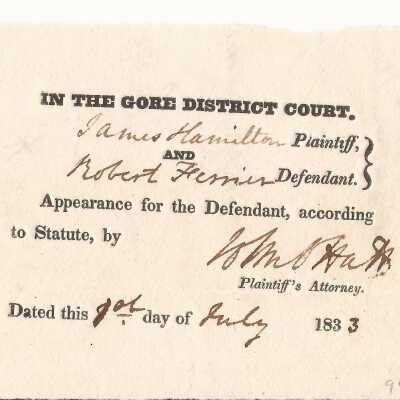 IN THE GORE DISTRICT COURT.
James Hamilton Plaintiff,
AND
Robert Ferrier Defendant.
Appearance for the Defendant, according
to Statute, by
Plaintiff's Attorney.
Dated this day of July 1833